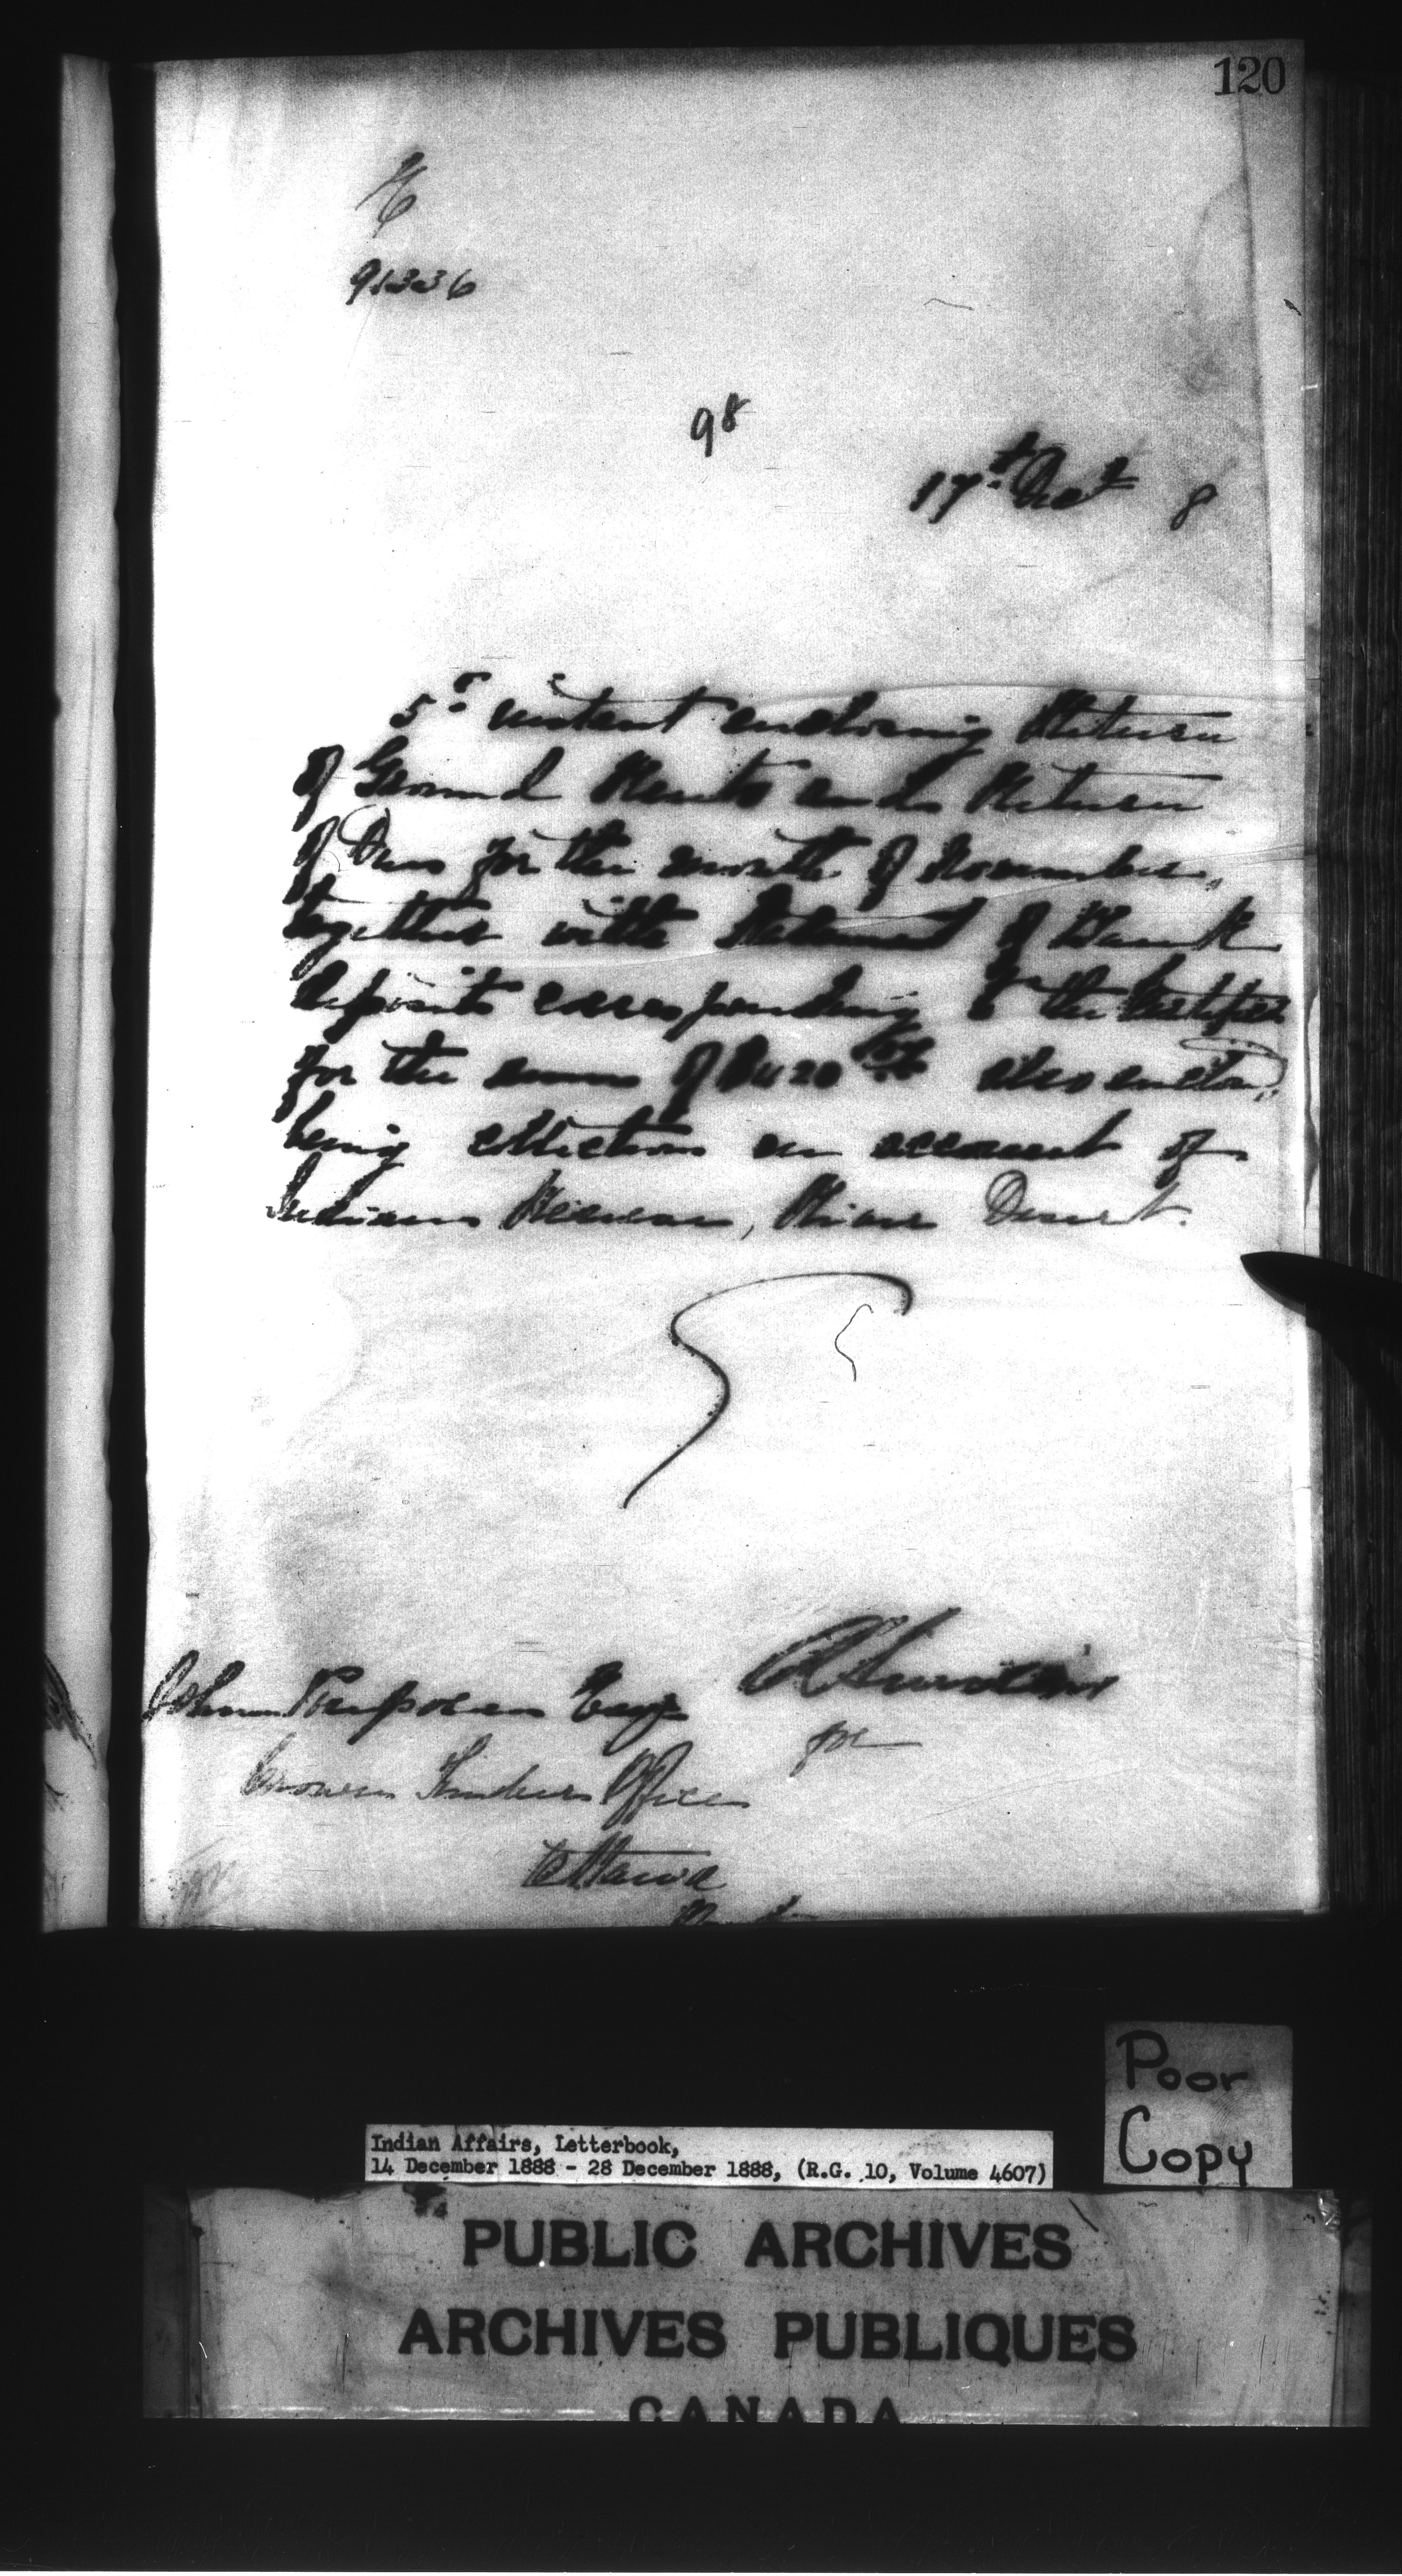 120
91336
98
17th 8
5th instant enclosing Return
of Ground Rents and Return
of Dues for the month of November,
together with Statement of Bank
deposits corresponding to the
for the sum of also
being collections on account of
Indians, River Desert.
Esq
for
Crown Timber Office
Ottawa
Poor
Copy
Indian Affairs, Letterbook,
14 December 1888 - 28 December 1888, (R.G. 10, Volume 4607)
PUBLIC ARCHIVES
ARCHIVES PUBLIQUES
CANADA